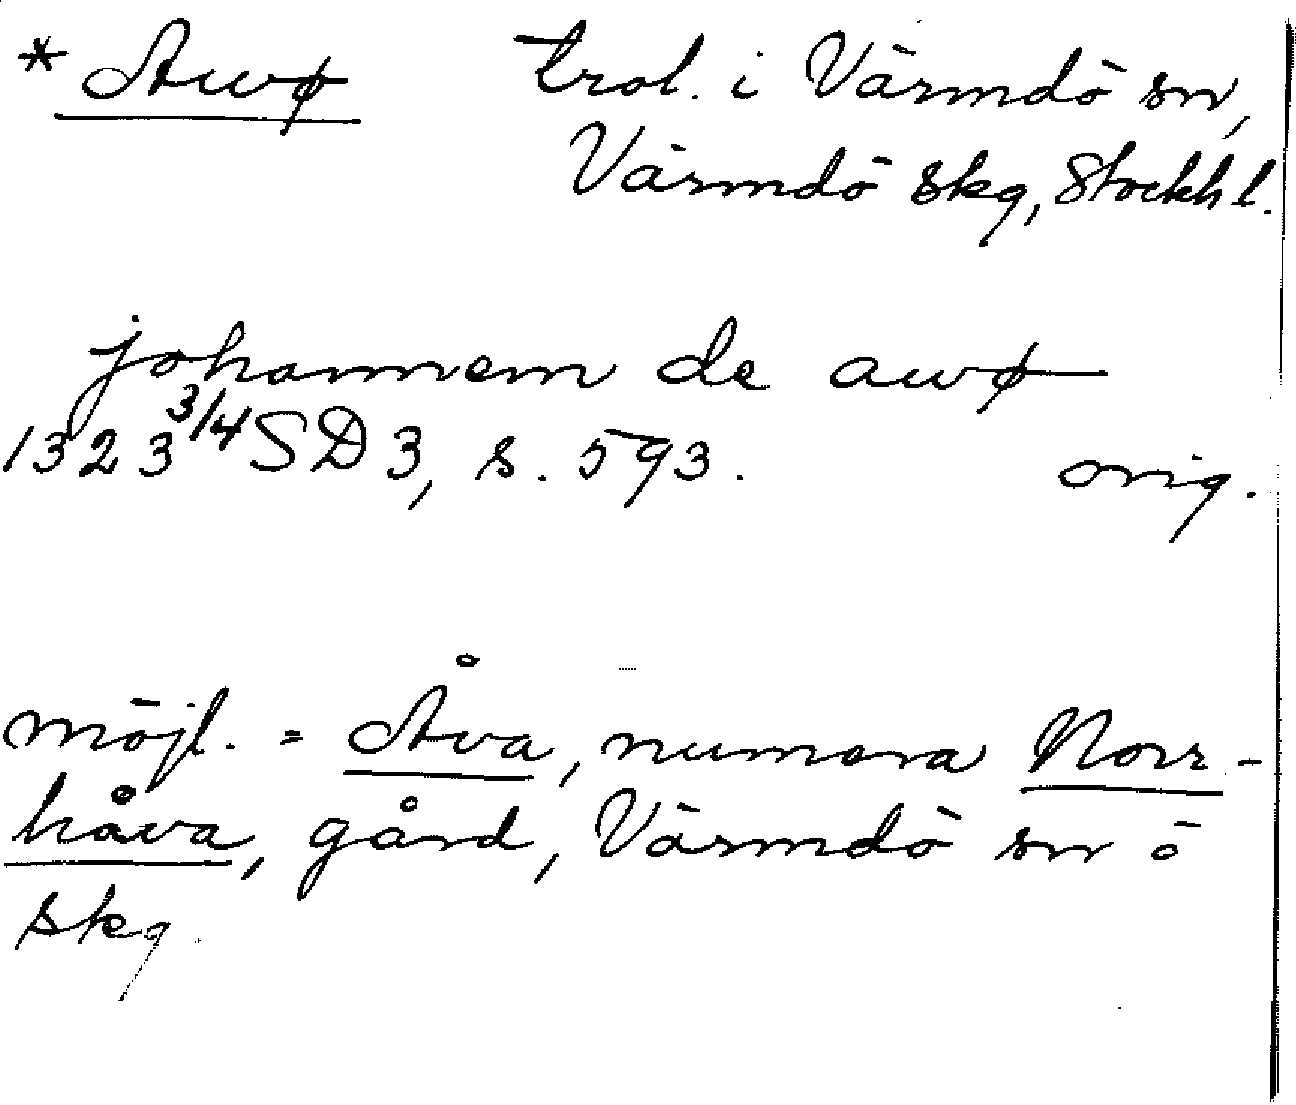 * Awø trol. i Värmdö sn,
Värmdö skg, Stockh l.
johannem de awø
1323 3/4 SD 3, s. 593. orig.
möjl. = Åva, numera Norr-
håva, gård, Värmdö sn o
skg.